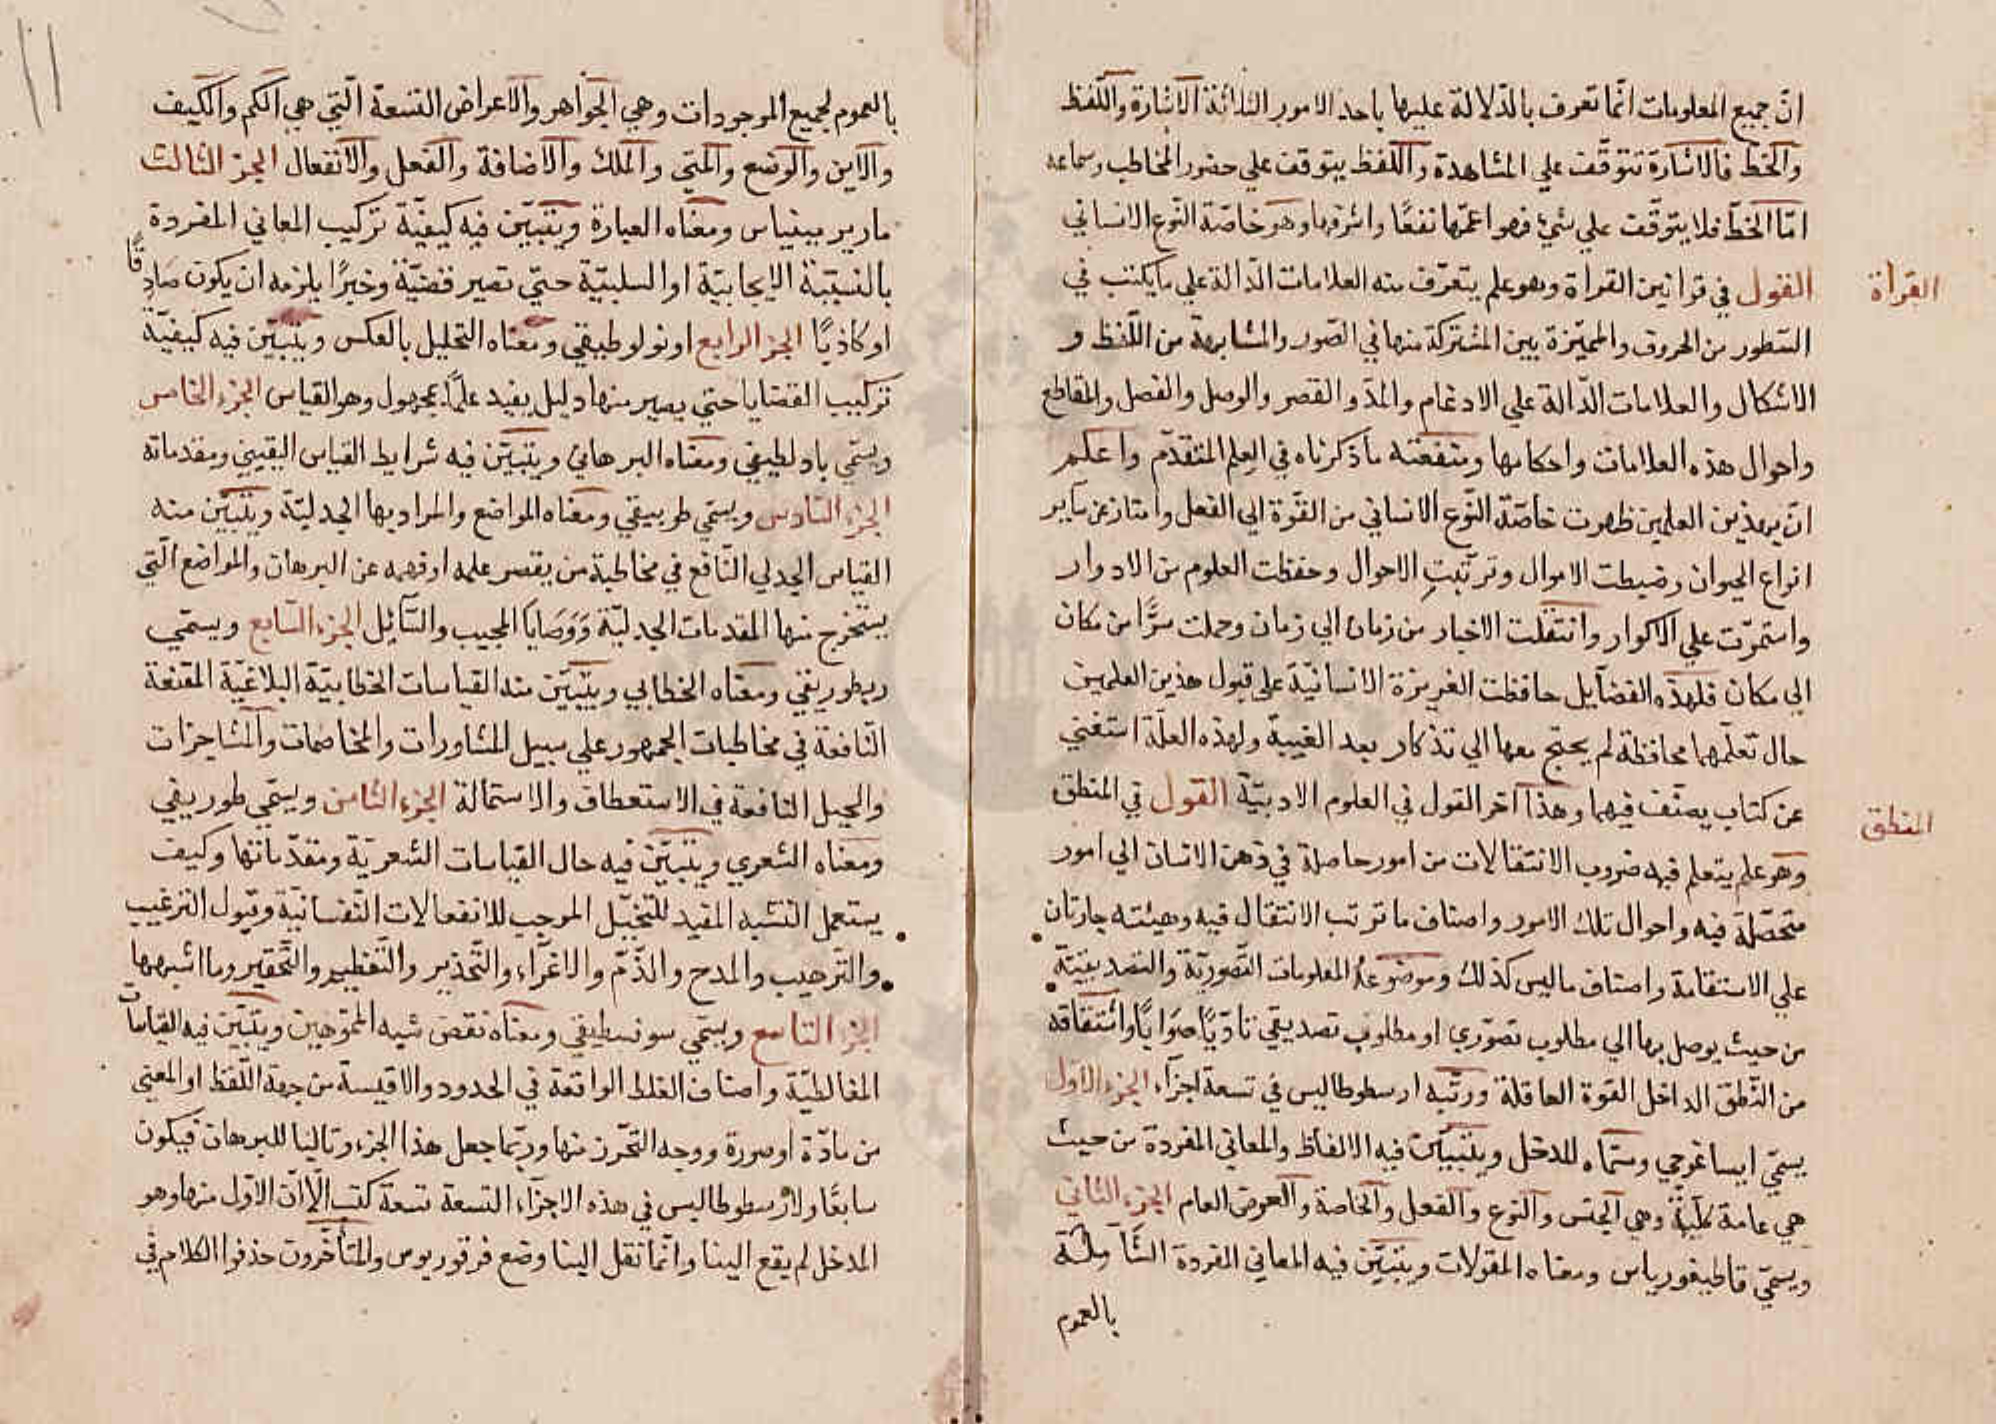 انّ جميع المعلومات انّما تعرف بالدّلالة عليها باحد الامور الثلاثة الاشارة واللّفظ
والخط فالاشارة تتوقّف علي المشاهدة واللّفظ يتوقف علي حضور المخاطب وسماعه
امّا الخطّ فلا يتوقّف علي شيء فهو اعمّها نفعًا واشرفها وهو خاصّة النّوع الانساني
القرأة
القول في قوانين القرأة وهو علم يتعرّف منه العلامات الدّالة علي ما يكتب في
السّطور من الحروف والمميّزة بين المشتركة منها في الصّور والمتشابهة من اللّفظ و
الاشكال والعلامات الدّالة علي الادغام والمدّ والقصر والوصل والفصل والمقاطع
واحوال هذه العلامات واحكامها ومنفعته ما ذكرناه في العلم المتقدّم واعلم
انّ بهذين العلمين ظهرت خاصّة النّوع الانساني من القوّة الي الفعل وامتاز عن ساير
انواع الحيوان وضبطت الاموال وترتّبت الاحوال وحفظت العلوم من الادوار
واستمرّت علي الاكوار وانتقلت الاخبار من زمان الي زمان وحملت سرًّا من مكان
الي مكان فلهذه الفضآيل حافظت الغريزة الانسانيّة علي قبول هذين العلمين
حال تعلّمهما محافظة لم يحتج معها الي تذكار بعد الغيبة ولهذه العلّة استغني
عن كتاب يصنّف فيهما وهذا آخر القول في العلوم الادبيّة القول في المنطق
المنطق
وهو علم يتعلم فيه ضروب الانتقالات من امور حاصلة في ذهن الانسان الي امور
متحصّلة فيه واحوال تلك الامور واصناف ما ترتب الانتقال فيه وهيئته جارتان
علي الاستقامة واصناف ماليس كذلك وموضوعه المعلومات التّصوريّة والتصديقيّة
من حيث يوصل بها الي مطلوب تصوّري او مطلوب تصديقي تادّيًا صوابًا واشتقاقه
من النّطق الداخل القوة العاقلة ورتّبه ارسطوطاليس في تسعة اجزآء الجزء الاول
يسمّي ايساغوجي ومعناه المدخل ويتبيّن فيه الالفاظ والمعاني المفردة من حيث
هي عامة كلّيّة وهي الجنس والنوع والفصل والخاصة والعرض العام الجزء الثاني
ويسمّي قاطيغورياس ومعناه المقولات ويتبيّن فيه المعاني المفردة الشّاملة
بالعموم
بالعموم لجميع الموجودات وهي الجواهر والاعراض التسعة الّتي هي الكم والكيف
والاين والوضع والمتي والملك والاضافة والفعل والانفعال الجزء الثالث
بارير مينياس ومعناه العبارة ويتبيّن فيه كيفيّة تركيب المعاني المفردة
بالنسبة الايجابيّة او السلبيّة حتي تصير قضيّة وخبرًا يلزمه ان يكون صادقًا
او كاذبًا الجزء الرابع انولوطيقي ومعناه التحليل بالعكس ويتبيّن فيه كيفيّة
تركيب القضايا حتي يصير منها دليل يفيد علمًا بمجهول وهو القياس الجزء الخامس
ويسمّي بادلطيقي ومعناه البرهاني ويتبيّن فيه شرايط القياس اليقيني ومقدماته
الجزء السّادس ويسمّي طوبيقي ومعناه المواضع والمراد بها الجدليّة ويتبيّن منه
القياس الجدلي النّافع في مخاطبة من يقصر علمه او فهمه عن البرهان والمواضع الّتي
يستخرج منها المقدمات الجدليّة ووصايا المجيب والسّآئل الجزء السّابع ويسمّي
ريطوريقي ومعناه الخطابي ويتبيّن منه القياسات الخطابيّة البلاغيّة المقنعة
النّافعة في مخاطبات الجمهور علي سبيل المشاورات والمخاصمات والمشاجرات
والحيل النافعة في الاستعطاف والاستمالة الجزء الثامن ويسمّي طوريقي
ومعناه الشعري ويتبيّن فيه حال القياسات الشعريّة ومقدّماتها وكيف
يستعمل التشبه المفيد للتخيّل الموجب للانفعالات النّفسانيّة وقبول الترغيب
والترهيب والمدح والذّمّ والاغرآء والتّحذير والتّعظيم والتّحقير وما اشبهها
الجزء التاسع ويسمّي سوفسطيقي ومعناه نقض شبه المموّهين ويتبيّن فيه القياسات
المغالطيّة واصناف الغلط الواقعة في الحدود والاقيسة من جهة اللّفظ او المعني
من مادّة او صورة ووجه التحّرز منها وربّما جعل هذا الجزء وتاليا للبرهان فيكون
سابعًا ولارسطوطاليس في هذه الاجزآء التسعة تسعة كتب الّا انّ الاوّل منها وهو
المدخل لم يقع الينا وانّما نقل الينا وضع فرفوريوس والمتأخّرون حذفوا الكلام في